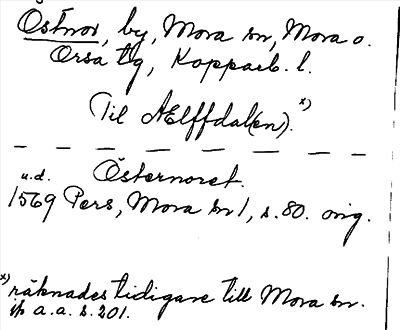 Östnor, by, Mora sn, Mora o.
Orsa tg, Kopparb. l.
Til AElffdal(en). x)
Östernoret.
u.d.
1569 Pers, Mora sn 1, s. 80. orig.
x) räknades tidigare till Mora sn.
a.a. s. 201.